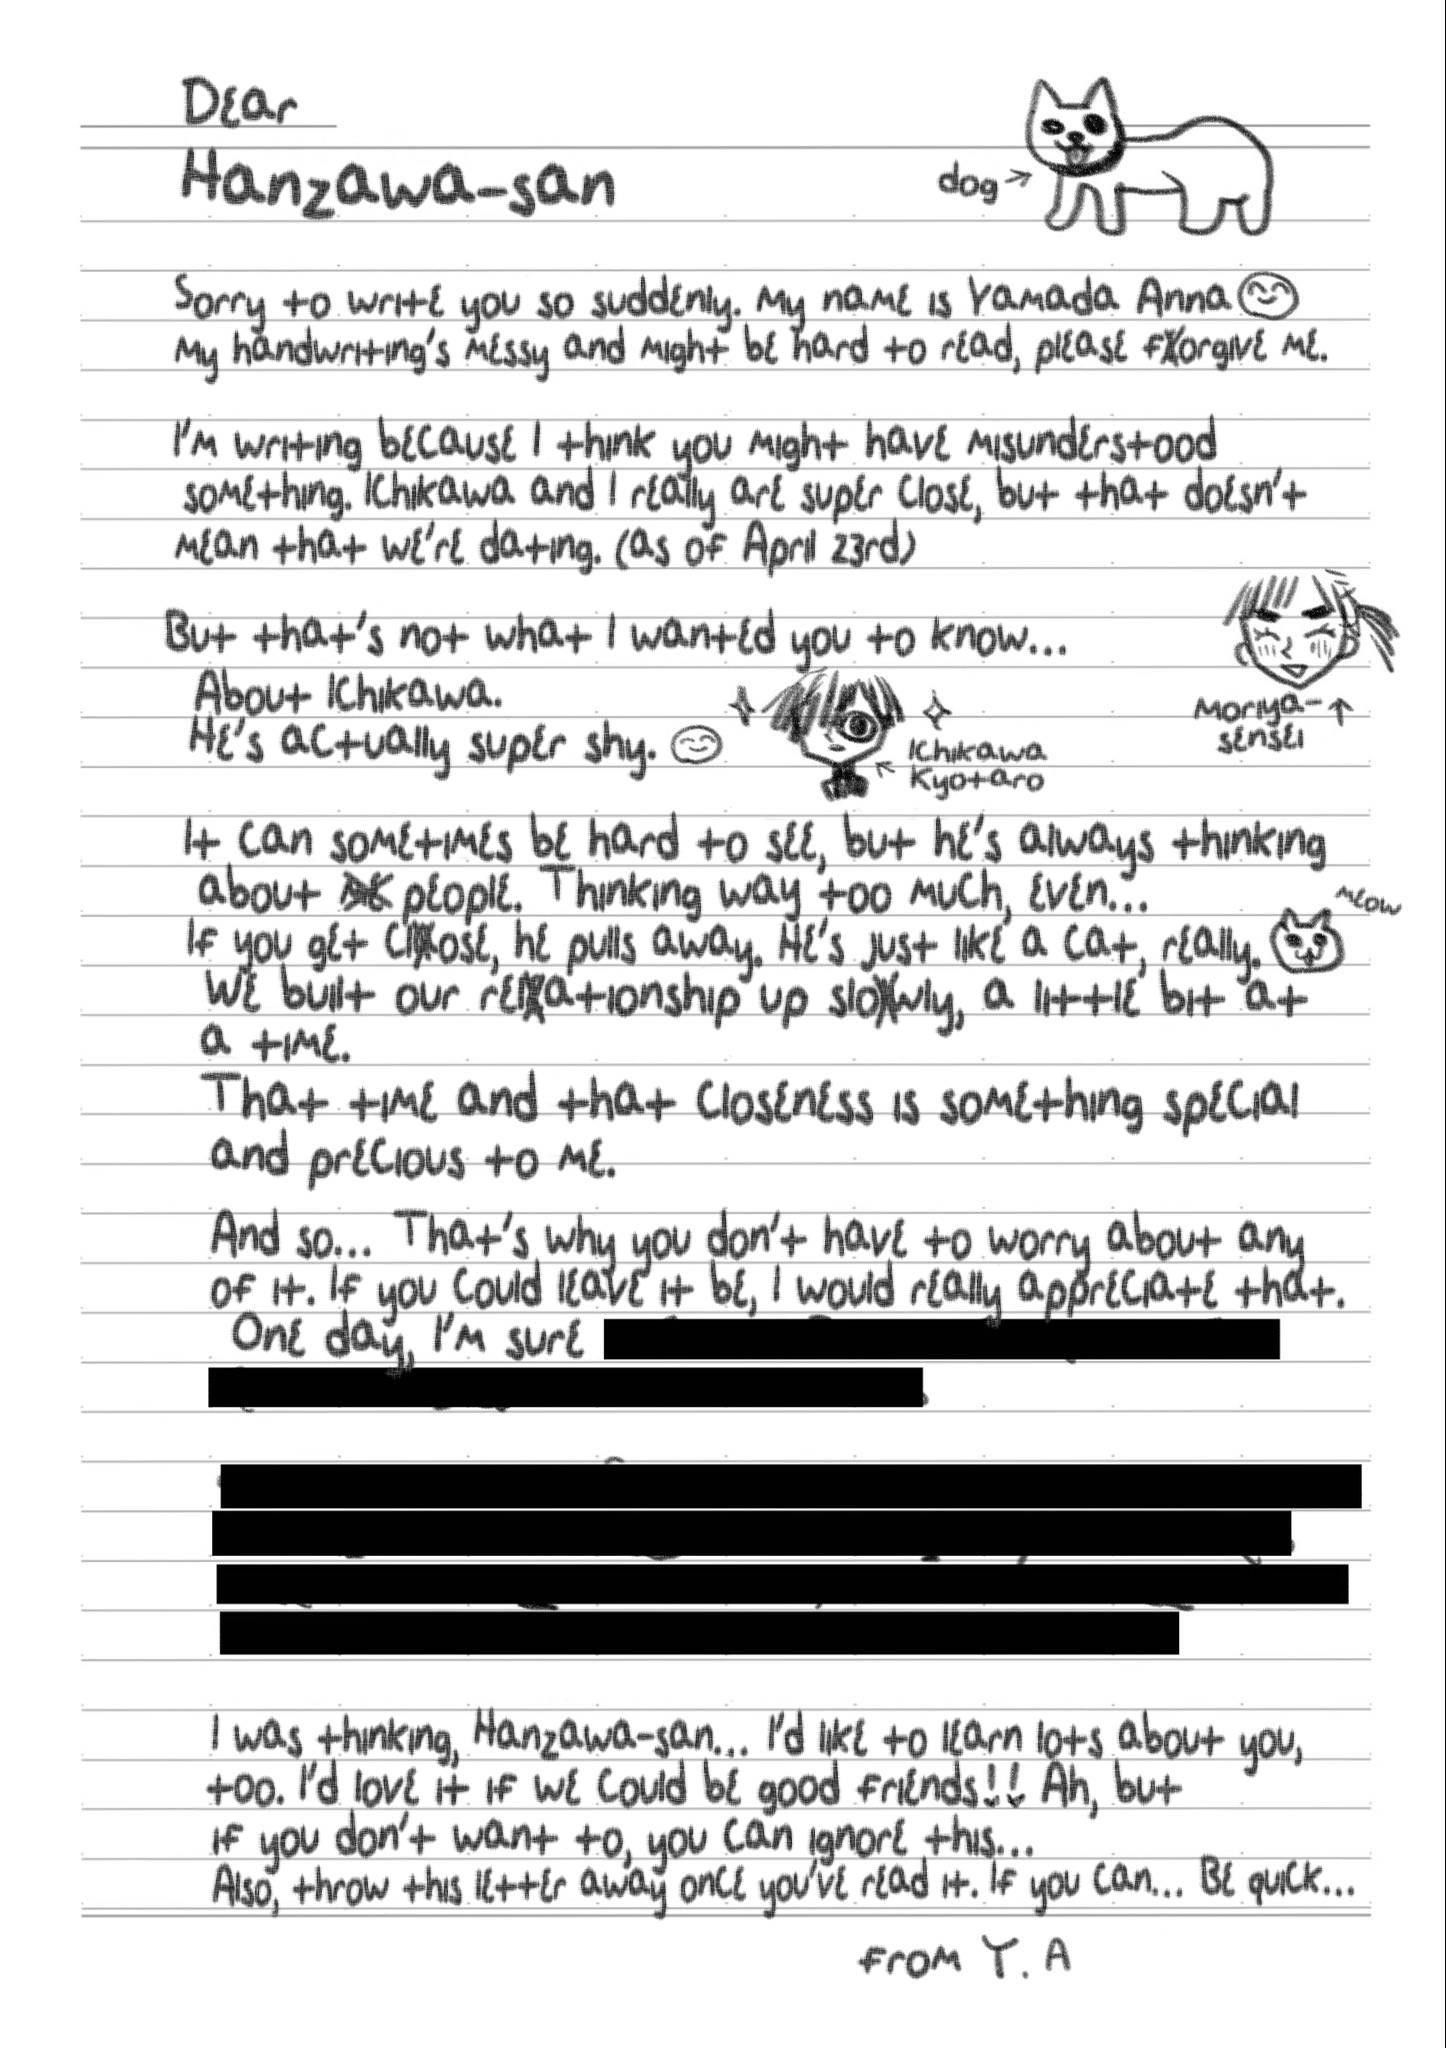 Dear
Hanzawa-san
dog
Sorry to write you so suddenly. My name is Yamada Anna
My handwriting's messy and might be hard to read, please forgive me.
I'm writing because I think you might have misunderstood
something. Ichikawa and I really are super close, but that doesn't
mean that we're dating. (as of April 23rd)
But that's not what I wanted you to know...
Moriya-
sensei
About Ichikawa.
He's actually super shy.
Ichikawa
Kyotaro
It can sometimes be hard to see, but he's always thinking
about people. Thinking way too much, even...
meow
If you get close, he pulls away. He's just like a cat, really.
We built our relationship up slowly, a little bit at
a time.
That time and that closeness is something special
and precious to me.
And so... That's why you don't have to worry about any
of it. If you could leave it be, I would really appreciate that.
One day, I'm sure
I was thinking, Hanzawa-san... I'd like to learn lots about you,
too. I'd love it if we could be good friends!! Ah, but
if you don't want to, you can ignore this...
Also, throw this letter away once you've read it. If you can... Be quick...
from Y. A